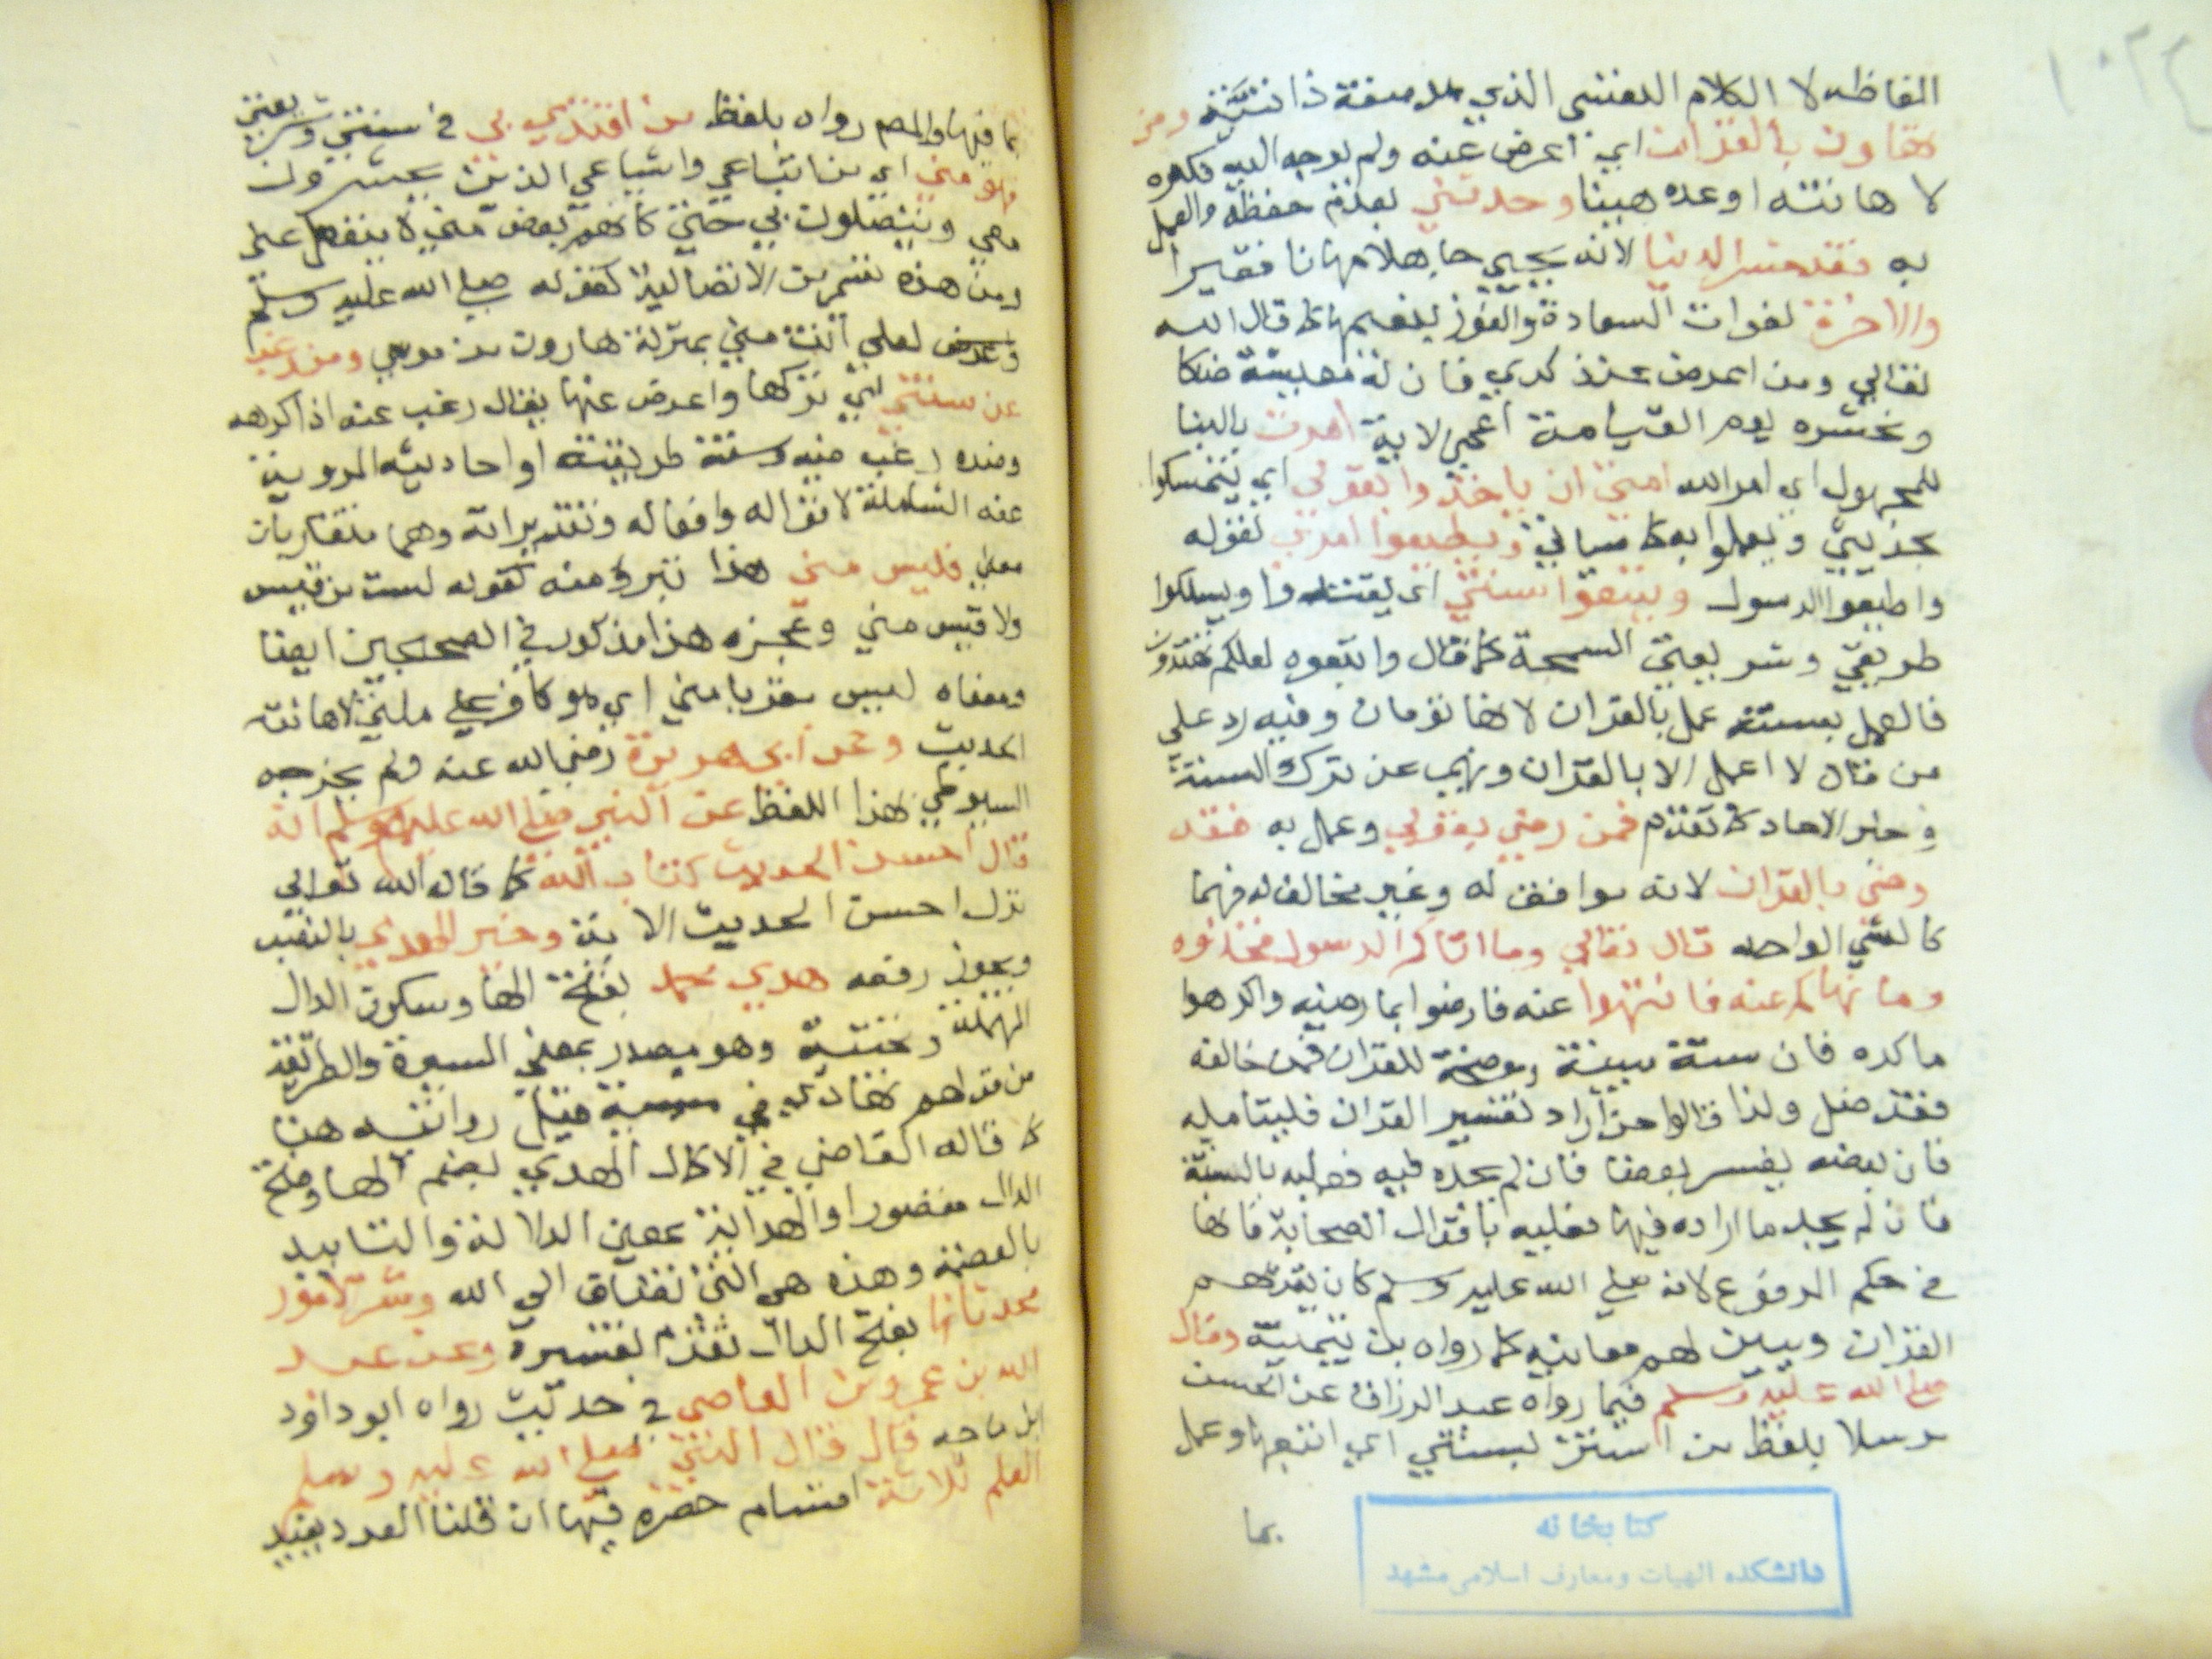 الفاظه لا الكلام النفسي الذي هو صفة ذاتية ومن
تهاون بالقران اي اعرض عنه ولم يوجه اليه فكره
لا هانته او عده هينا وحديثي بعدم حفظه والعمل
به فقد خسر الدنيا لانه يجيي جاهلا مهانا فقيرا
والاخرة لفوات السعادة والفوز بنعيمها كما قال الله
تعالي ومن اعرض عن ذكري فان له معيشة ضنكا
ونحشره يوم القيامة اعمي الاية امرت بالبنا
للمجهول اي امر الله امتي ان ياخذوا بقولي اي يتمسكوا
بحديثي ويعملوا به كما سياتي ويطيعوا امري لقوله
واطيعوا الرسول ويتبعوا سنتي اي يقتدوا ويسلكوا
طريقتي وشريعتي السمحة كما قال واتبعوه لعلكم تهتدون
فالعمل بسنته عمل بالقران لانها تؤمان وفيه رد علي
من قال لا اعمل الا بالقران ونهي عن ترك السنة
وخبر الاحاد كما تقدم فمن رضي بقولي وعمل به فقد
رضي بالقران لانه موافق له وغير مخالف له فهما
كالشي الواحد قال تعالي وما اتاكم الرسول فخذوه
وما نهاكم عنه فانتهوا عنه فارضوا بما رضيه واكرهوا
ما كره فان سنته مبينة وموضحة للقران فمن خالفه
فقد ضل ولذا قالوا من اراد تفسير القران فليتامله
فان بعضه يفسر بعضا فان لم يجده فيه فعليه بالسنة
فان لم يجد ما اراده فيها فعليه باقوال الصحابة فانها
في حكم المرفوع لانه صلي الله عليه وسلم كان يقرئهم
القران ويبين لهم معانيه كما رواه بن تيمية وقال
صلي الله عليه وسلم فيما رواه عبد الرزاق عن الحسن
مرسلا بلفظ من استن بسنتي اي اتبعها وعمل
بما
كتابخانه
دانشكده الهيات ومعارف اسلامی مشهد
بما فيها والمصم رواه بلفظ من اقتدي بي في سنتي وشريعتي
فهو مني اي من اتباعي واشياعي الذين يحشرون
معي ويتصلون بي حتي كانهم بعض مني لا ينفصل عني
ومن هذه تسمي من الاتصالية كقوله صلي الله عليه وسلم
لعلي انت مني بمنزلة هارون من موسي ومن رغب
عن سنتي اي تركها واعرض عنها يقال رغب عنه اذا كرهه
وضده رغب فيه وسنته طريقته او احاديثه المروية
عنه الشاملة لاقواله وافعاله وتقديراته وهما متقاربان
معني فليس مني هذا تبرؤ منه كقوله لست من قيس
ولا قيس مني وعجزه هذا مذكور في الصحيحين ايضا
ومعناه ليس مقربا مني اي هو كافر علي ملتي لاهانته
الحديث وعن ابي هريرة رضي الله عنه ولم يخرجه
السيوطي بهذا اللفظ عن النبي صلي الله عليه وسلم انه
قال احسن الحديث كتاب الله كما قال الله تعالي
نزل احسن الحديث الاية وخير الهدي بالنصب
ويجوز رفعه هدي محمد بفتح الها وسكون الدال
المهملة وتحتية وهو مصدر بمعني السيرة والطريقة
من قولهم تهادي في مشيه قيل روايته هنا
كما قاله القاضي في الاكمال الهدي بضم الها وفتح
الدال مقصورا والهداية بمعني الدلالة والتاييد
بالعصمة وهذه هي التي تضاف الي الله وشر الامور
محدثاتها بفتح الدال تقدم تفسيره وعن عبد
الله بن عمرو بن العاصي في حديث رواه ابو داود
ابن ماجه قال قال النبي صلي الله عليه وسلم
العلم ثلاثة اقسام حصره فيها ان قلنا العدد يفيد